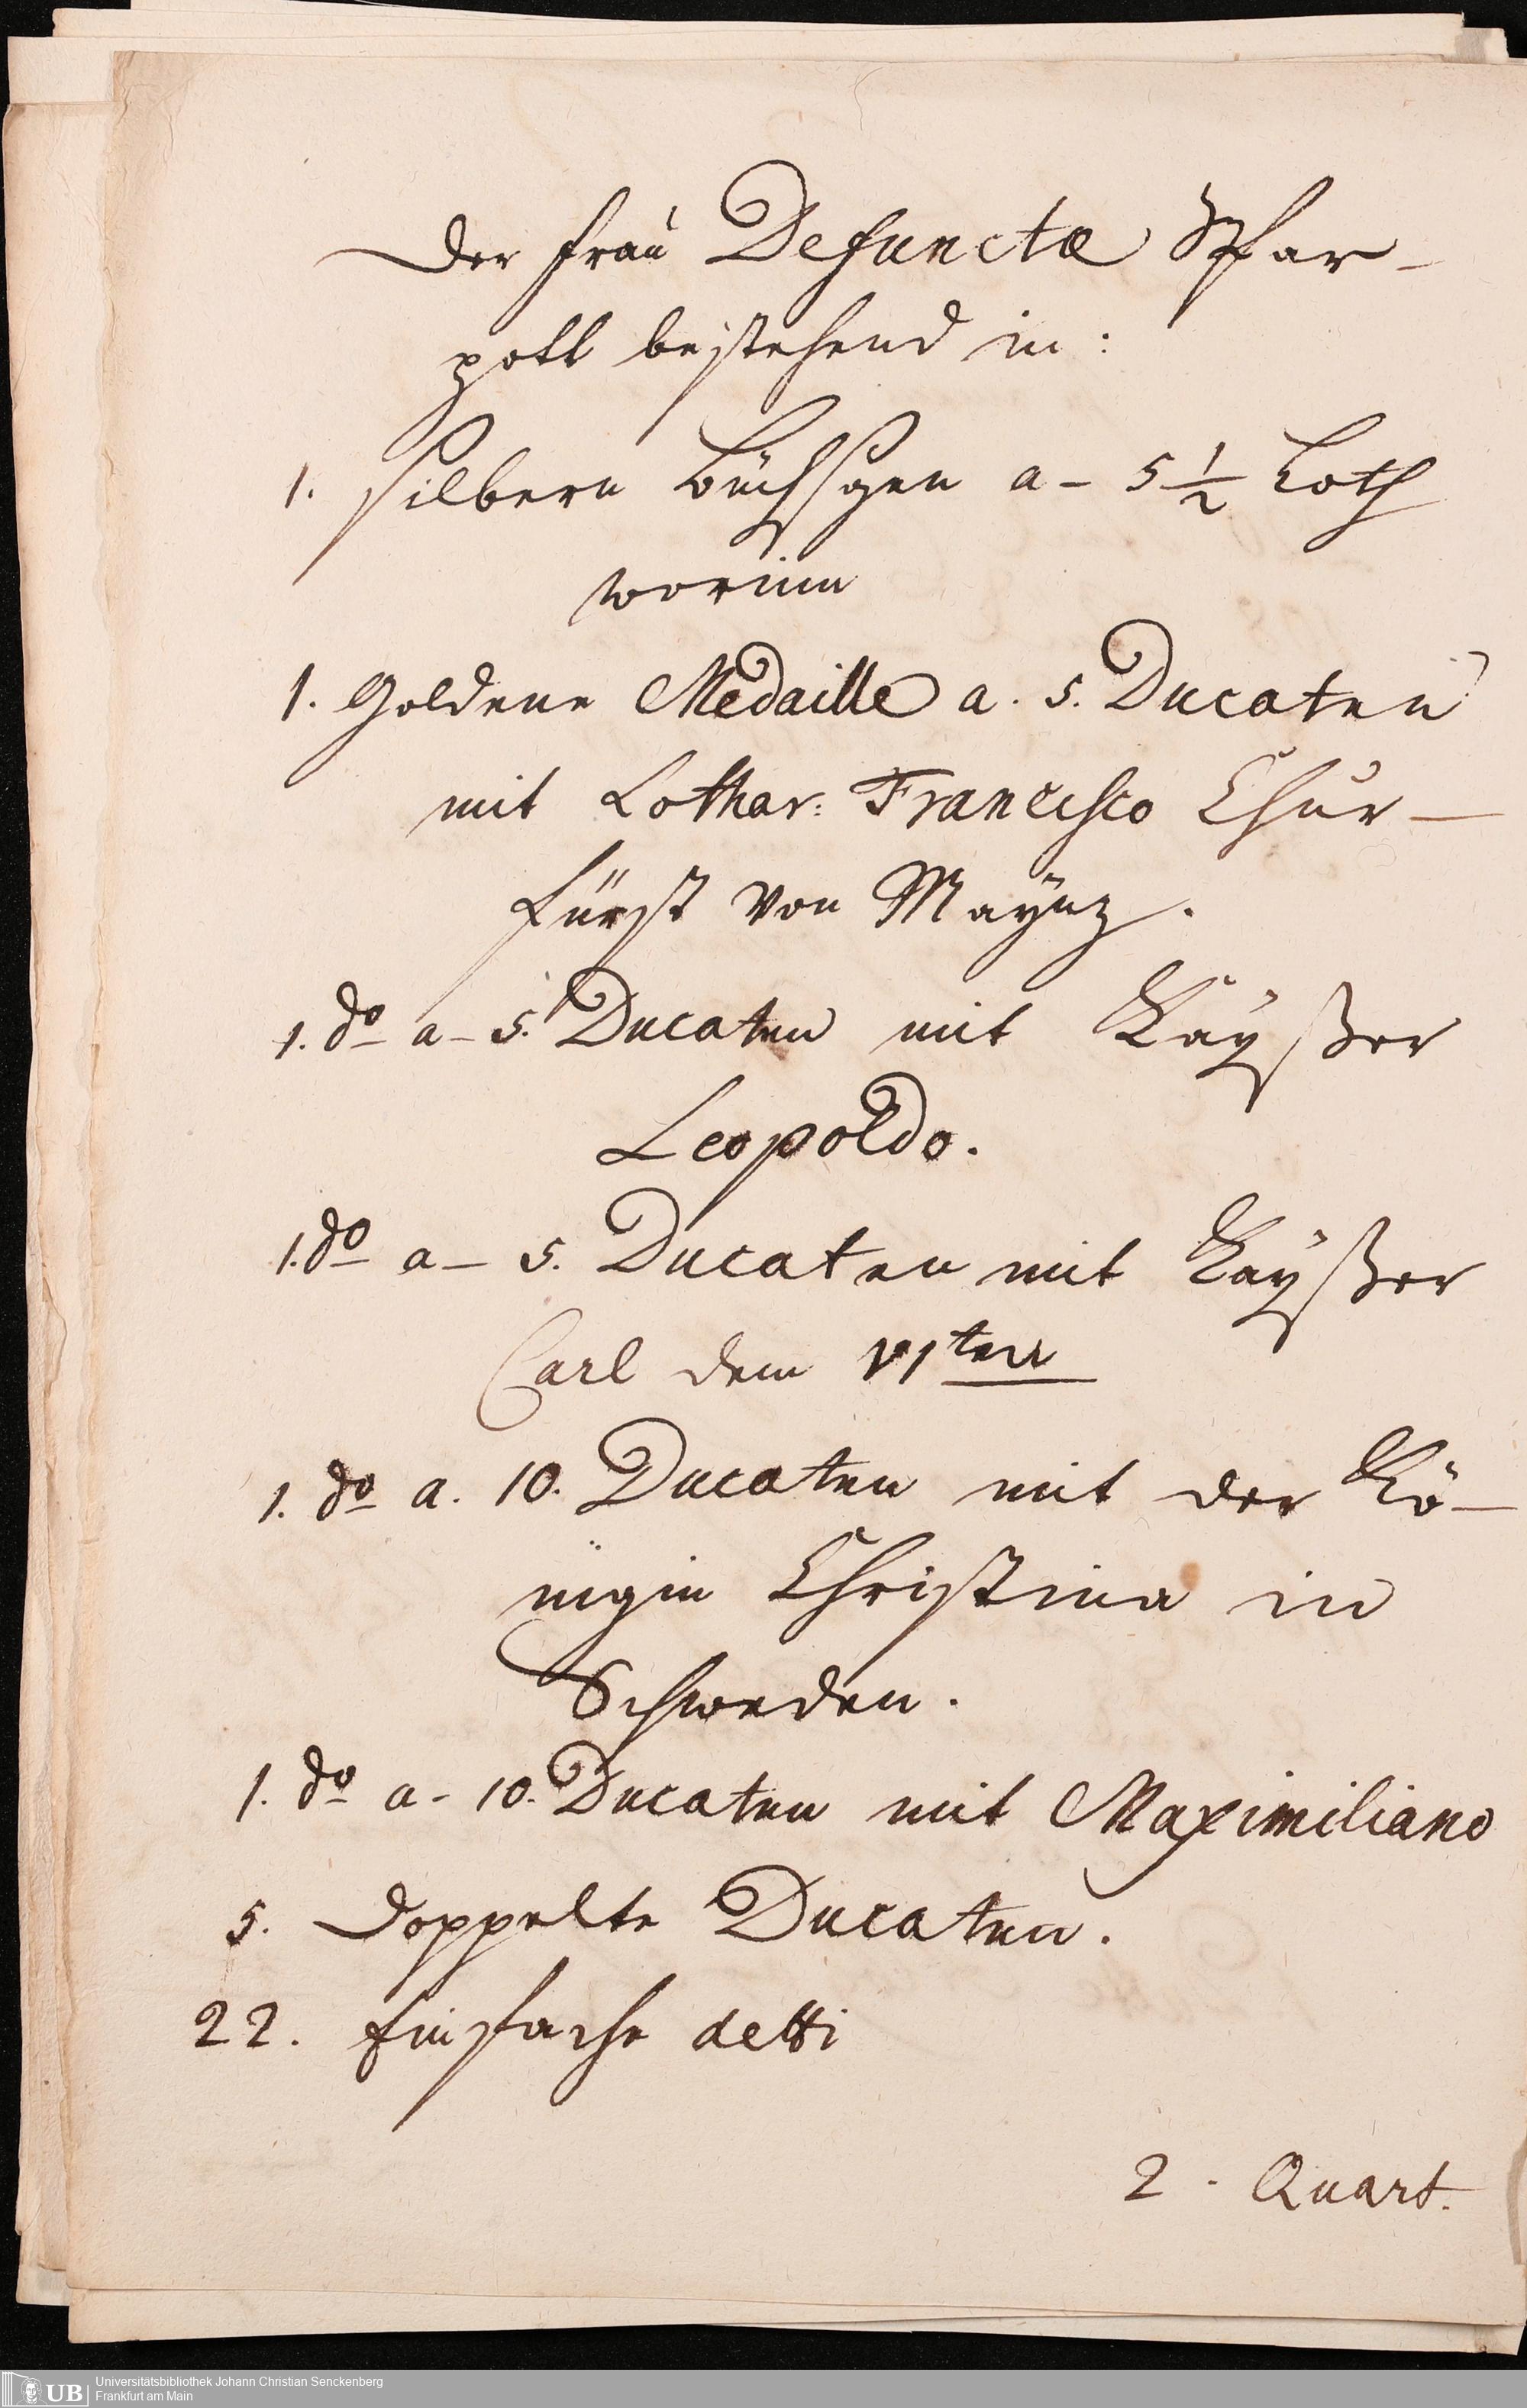 Der Frau Defunctæ Spar-
pott bestehend in:
1. silbern Büchsgen a - 5 1/2 Loth
worinn
1. Goldene Medaille a. 5. Ducaten
mit Lothar: Francisco Chur-
fürst von Maÿnz.
1. do a - 5. Ducaten mit Kaÿßer
Leopoldo.
1. do a - 5. Ducaten mit Kaÿßer
Carl dem VIten
1. do a. 10. Ducaten mit der Kö-
nigin Christina in
Schweden.
1. do a - 10. Ducaten mit Maximiliano
5. Doppelte Ducaten.
22. Einfache detti
2 - Quart.
UB
Universitätsbibliothek Johann Christian Senckenberg
Frankfurt am Main